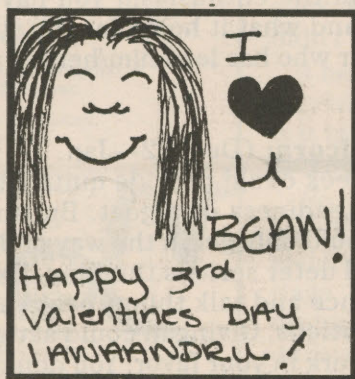 I
♥
u
BEAN!
HAPPY 3rd
Valentines DAY
IAWAANDRU!